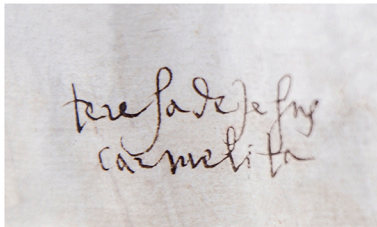 teresa de Jesus
carmelita